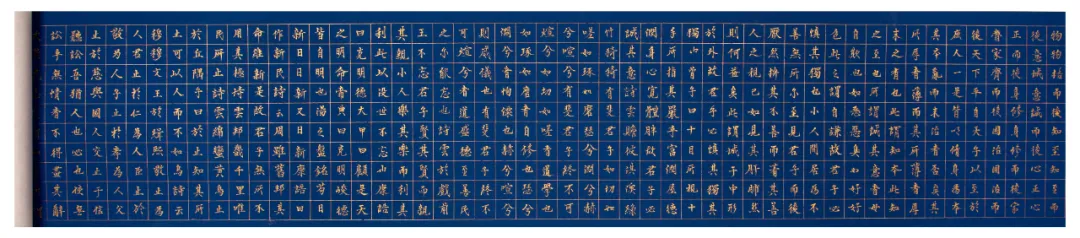 物格而後知至知至而
後意誠意誠而後心
正而後身修身修而後家
齊家齊而後國治國治而
後天下平自天子以至於
庶人一是皆以修身為本
其本亂而末治者否矣其
所厚者薄而其所薄者厚
未之有也此謂知本此謂知
之至也所謂誠其意者毋
自欺也如惡惡臭如好好
色此之謂自謙故君子必
慎其獨也小人閒居為不
善無所不至見君子而後
厭然揜其不善而著其善
人之視己如見其肺肝然
則何益矣此謂誠於中形
於外故君子必慎其
獨也曾子曰十目所視十
手所指其嚴乎富潤屋德
潤身心寬體胖故君子必
誠其意詩云瞻彼淇澳綠
竹猗猗有斐君子如切如
磋如琢如磨瑟兮僩兮赫
兮喧兮有斐君子終不可
諠兮如切如磋者道學也
如琢如磨者自修也瑟兮
僩兮者恂慄也赫兮喧兮
則威儀也有斐君子終不
可諠兮者道盛德至善民
之不能忘也詩云於戲前
王不忘君子賢其賢而親
其親小人樂其樂而利其
利此以沒世不忘也康誥
曰克明德大甲曰顧諟天
之明命帝典曰克明峻德
皆自明也湯之盤銘曰苟日
新日日新又日新康誥曰
作新民詩曰周雖舊邦其
命維新是故君子無所不
用其極詩云邦畿千里惟
民所止詩云緡蠻黃鳥止
於丘隅子曰於止知其所
止可以人而不如鳥乎詩云
穆穆文王於緝熙敬止為
人君止於仁為人臣止於
敬為人子止於孝為人父
止於慈與國人交止於信
聽訟吾猶人也必也使無
訟乎無情者不得盡其辭